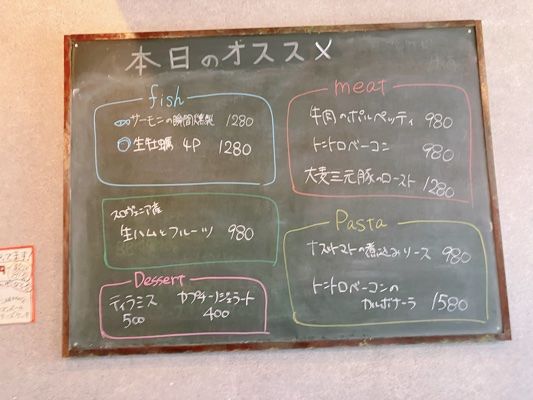 本日のオススメ
fish
サーモンの瞬間燻製 1280
生牡蠣 4P 1280
スロヴェニア産
生ハムとフルーツ 980
Dessert
ティラミス
500
カプチーノジェラート
400
meat
牛肉のポルペッティ 980
トントロベーコン 980
大麦三元豚のロースト 1280
Pasta
ナストマトの煮込みソース 980
トントロベーコンの
カルボナーラ 1580